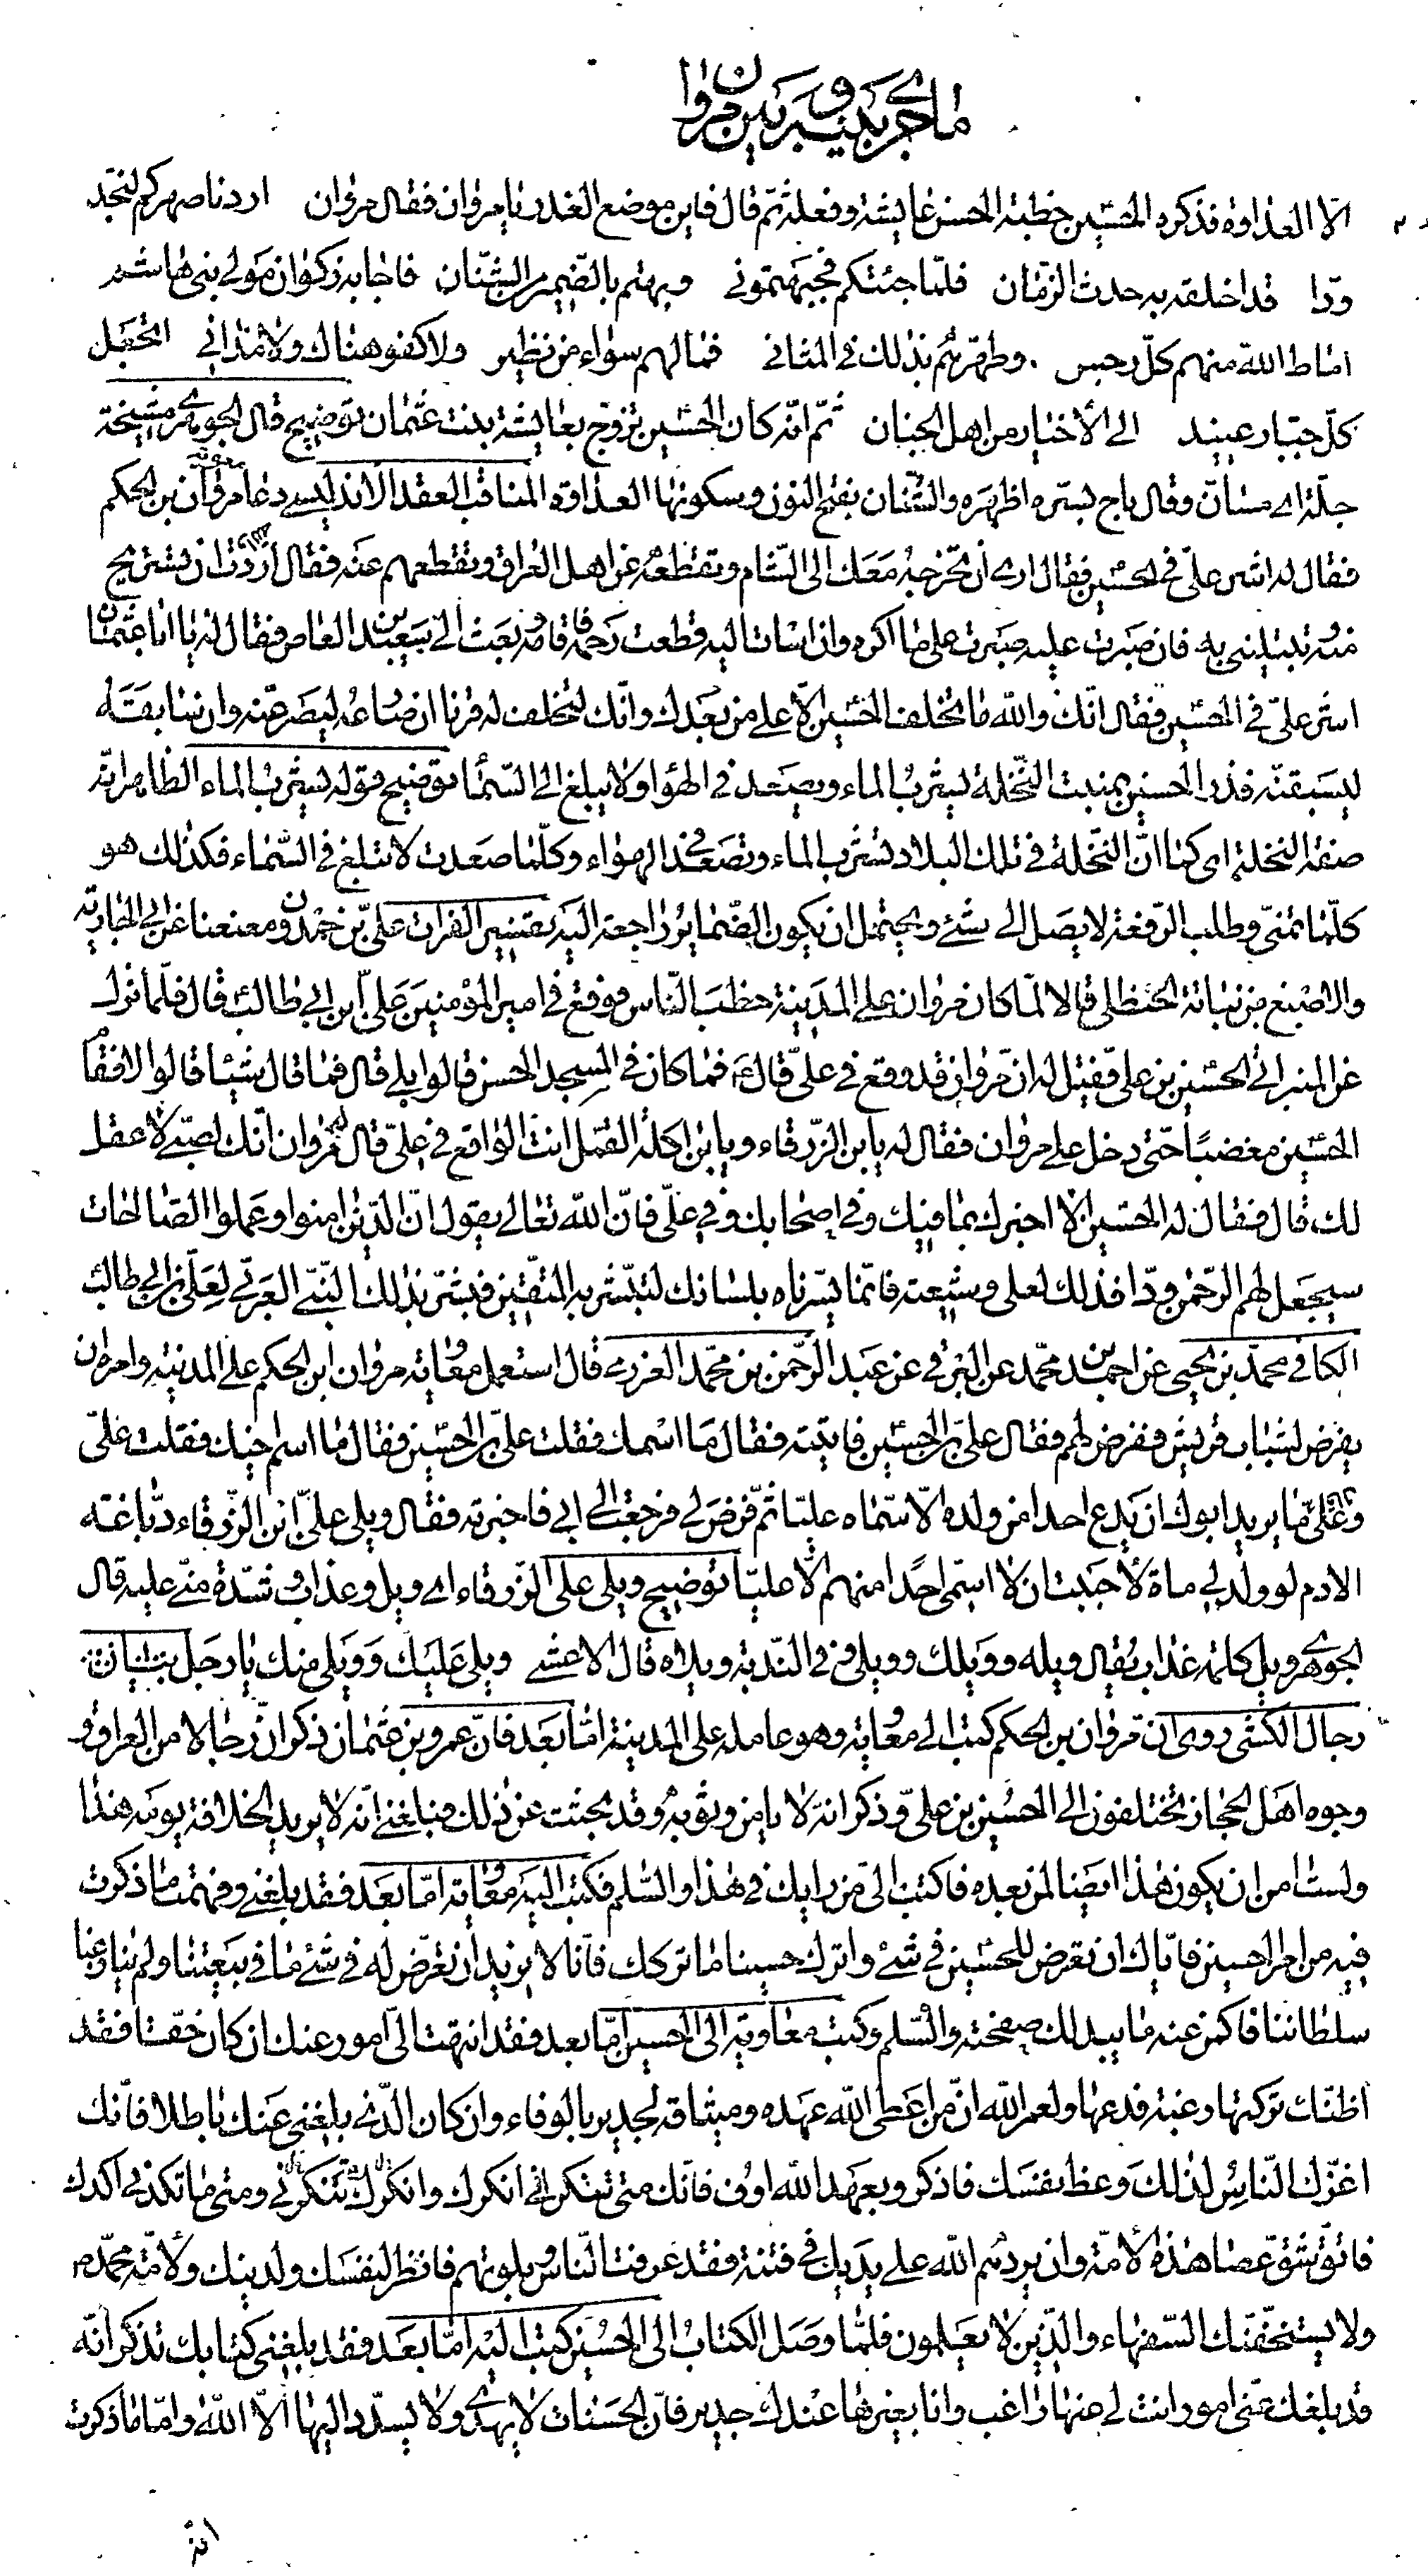 ماجری بینه و بین مروان
الا العداوة فذكره الحسين خطبة الحسن عايشة وفعله ثم قال فاين موضع الغدر يا مروان فقال مروان اردنا صهركم لنجد
ودا قد اخلقه به حدث الزمان فلما جئتكم فجبهتموني وبهتم بالضمير من الشنان فاجابه ذكوان مولى بنى هاشم
اماط الله منهم كل رجس وطهرهم بذلك فى المثاني فما لهم سواء من نظير ولا كفو هناك ولا مداني اتجعل
كل جبار عنيد الى الأخيار من اهل الجنان ثم انه كان الحسين تزوج بعايشة بنت عثمان توضيح قال الجوهري مشيخة
جلة اى مسان وقال باح بسره اظهره والشنان بفتح النون وسكونها العداوة المناقب العقد الاندليسى دعا معوية مروان بن الحكم
فقال له اشر على فى الحسين فقال ارى ان تخرجه معك الى الشام وتقطعه عن اهل العراق وتقطعهم عنه فقال اردت ان تستريح
منه وتبتليني به فان صبرت عليه صبرت على ما اكره وان اسات اليه قطعت رحمه فاقامه وبعث الى سعيد بن العاص فقال له يا ابا عثمان
اشر على فى الحسين فقال انك والله ما تخلف الحسين الا على من بعدك وانك لتخلف له قرنا ان صارعه ليصرعنه وان سابقه
ليسبقنه فذر الحسين بمنبت النخلة يشرب الماء ويصعد فى الهواء ولا يبلغ الى السماء توضيح قوله يشرب الماء الظاهر انه
صفة النخلة اى كما ان النخلة فى تلك البلاد تشرب الماء وتصعد فى الهواء وكلما صعدت لا تبلغ فى السماء فكذلك هو
كلما تمنى وطلب الرفعة لا يصل الى شئ ويحتمل ان يكون الضماير راجعة اليه تفسير الفرات على بن حمدون معنعنا عن ابى الجارية
والاصبغ بن نباتة الحنظلي قالا لما كان مروان على المدينة خطب الناس فوقع فى امير المؤمنين على بن ابى طالب قال فلما نزل
عن المنبر اتى الحسين بن على فقيل له ان مروان قد وقع فى على قال فما كان فى المسجد الحسن قالوا بلى قال فما قال شيئا قالوا لا فقام
الحسين مغضبا حتى دخل على مروان فقال له يا بن الزرقاء ويا بن اكلة القمل انت الواقع فى على قال له مروان انك لصبى لا عقل
لك قال فقال له الحسين الا اخبرك بما فيك وفى اصحابك وفى على فان الله تعالى يقول ان الذين امنوا وعملوا الصالحات
سيجعل لهم الرحمن ودا فذلك لعلى وشيعته فانما يسرناه بلسانك لتبشر به المتقين فبشر بذلك النبي العربي لعلى بن ابى طالب
الكافى محمد بن يحيى عن احمد بن محمد عن البرقي عن عبد الرحمن بن محمد العزرمي قال استعمل معاوية مروان ابن الحكم على المدينة وامره ان
يفرض لشباب قريش ففرض لهم فقال على بن الحسين فاتيته فقال ما اسمك فقلت على بن الحسين فقال ما اسم اخيك فقلت على
فقال على وعلى ما يريد ابوك ان يدع احدا من ولده الا سماه عليا ثم فرض لى فرجعت الى ابى فاخبرته فقال ويلى على ابن الزرقاء دباغة
الادم لو ولد لى ماة لأحببت ان لا اسمى احدا منهم الا عليا توضيح ويلى على الزرقاء اى ويل وعذاب وشدة منى عليه قال
الجوهري ويل كلمة عذاب يقال ويله وويلك وويلى وفى الندبة ويلاه قال الاعشى ويلى عليك وويلى منك يا رجل بيان
رجال الكشى روى ان مروان بن الحكم كتب الى معاوية وهو عامله على المدينة اما بعد فان عمرو بن عثمان ذكر ان رجالا من العراق و
وجوه اهل الحجاز يختلفون الى الحسين بن على وذكر انه لا يامن وثوبه وقد بحثت عن ذلك فبلغنى انه لا يريد الخلافة يومه هذا
ولست امن ان يكون هذا ايضا لمن بعده فاكتب الى برايك فى هذا والسلم فكتب اليه معاوية اما بعد فقد بلغنى وفهمت ما ذكرت
فيه من امر الحسين فاياك ان تعرض للحسين فى شئ واترك حسينا ما تركك فانا لا نريد ان نعرض له فى شئ ما وفى ببيعتنا ولم ينازعنا
سلطاننا فاكمن عنه ما لم يبد لك صفحته والسلم وكتب معاوية الى الحسين اما بعد فقد انتهت الى امور عنك ان كان حقا فقد
اظنك تركتها رغبة فدعها ولعمر الله ان من اعطى الله عهده وميثاقه لجدير بالوفاء وان كان الذى بلغنى عنك باطلا فانك
اعزل الناس لذلك وعظ نفسك فاذكر وبعهد الله اوف فانك متى تنكرنى انكرك ومتى ما تكدنى اكدك
فاتق شق عصا هذه الأمة وان يردهم الله على يديك فى فتنة فقد عرفت الناس وبلوتهم فانظر لنفسك ولدينك ولأمة محمد
ولا يستخفنك السفهاء والذين لا يعلمون فلما وصل الكتاب الى الحسين كتب اليه اما بعد فقد بلغنى كتابك تذكر انه
قد بلغك عنى امور انت لى عنها راغب وانا بغيرها عندك جدير فان الحسنات لا يهدى ولا يسدد اليها الا الله واما ما ذكرت
انه